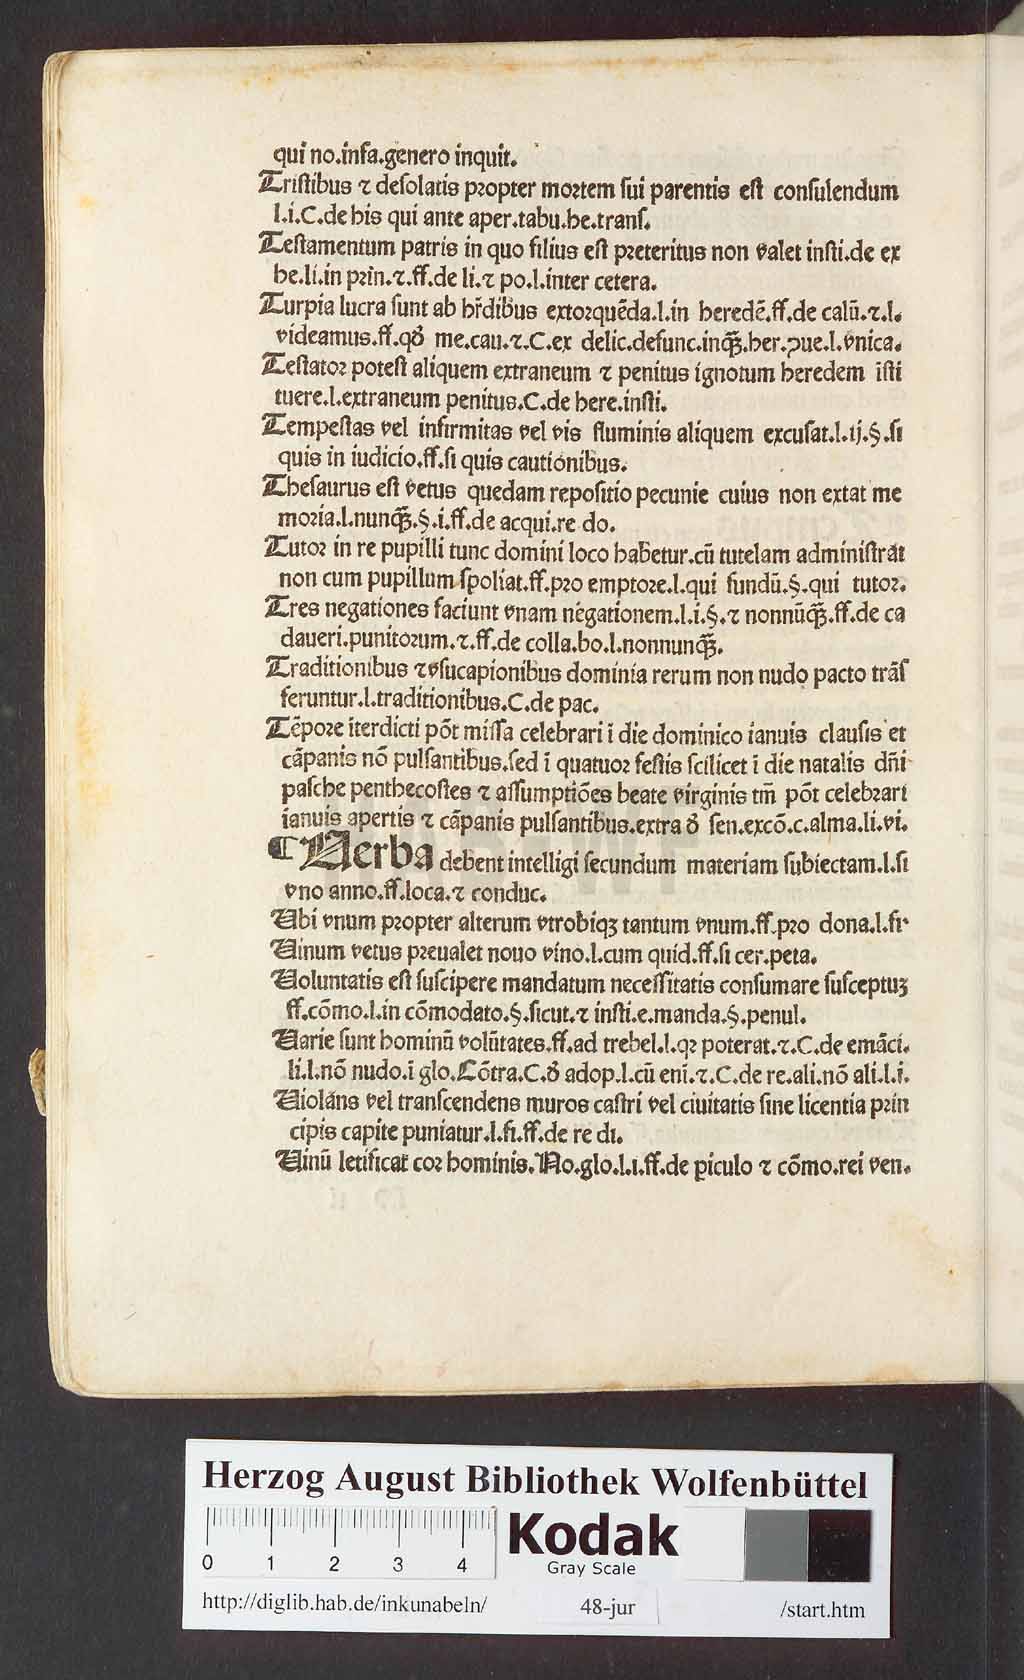 qui no.infa.genero inquit.
Tristibus ⁊ desolatis propter mortem sui parentis est consulendum
l.i.C.de his qui ante aper.tabu.he.trans.
Testamentum patris in quo filius est preteritus non valet insti.de ex
he.li.in prin.⁊.ff.de li.⁊ po.l.inter cetera.
Turpia lucra sunt ab hr̄dibus extorquēda.l.in heredē.ff.de calū.⁊.l.
videamus.ff.qđ me.cau.⁊.C.ex delic.defunc.inqȝ.her.ꝯue.l.vnica.
Testator potest aliquem extraneum ⁊ penitus ignotum heredem īsti
tuere.l.extraneum penitus.C.de here.insti.
Tempestas vel infirmitas vel vis fluminis aliquem excusat.l.ij.§.si
quis in iudicio.ff.si quis cautionibus.
Thesaurus est vetus quedam repositio pecunie cuius non extat me
moria.l.nunqȝ.§.i.ff.de acqui.re do.
Tutor in re pupilli tunc domini loco habetur.cū tutelam administrat
non cum pupillum spoliat.ff.pro emptore.l.qui fundū.§.qui tutor.
Tres negationes faciunt vnam negationem.l.i.§.⁊ nonnūqȝ.ff.de ca
daueri.punitorum.⁊.ff.de colla.bo.l.nonnunqȝ.
Traditionibus ⁊vsucapionibus dominia rerum non nudo pacto trāſ
feruntur.l.traditionibus.C.de pac.
Tēpore iterdicti pōt missa celebrari ī die dominico ianuis clausis et
cāpanis nō pulsantibus.sed ī quatuor festis scilicet ī die natalis dn̄i
pasche penthecostes ⁊ assumptiōes beate virginis tm̄ pōt celebrari
ianuis apertis ⁊ cāpanis pulsantibus.extra đ sen.excō.c.alma.li.vi.
¶Verba debent intelligi secundum materiam subiectam.l.si
vno anno.ff.loca.⁊ conduc.
Ubi vnum propter alterum vtrobiqȝ tantum vnum.ff.pro dona.l.fi
Uinum vetus preualet nouo vino.l.cum quid.ff.si cer.peta.
Uoluntatis est suscipere mandatum necessitatis consumare susceptuȝ
ff.cōmo.l.in cōmodato.§.sicut.⁊ insti.e.manda.§.penul.
Uarie sunt hominū volūtates.ff.ad trebel.l.qꝛ poterat.⁊.C.de emāci.
li.l.nō nudo.ī glo.Cōtra.C.đ adop.l.cū eni.⁊.C.de re.ali.nō ali.l.i.
Uiolans vel transcendens muros castri vel ciuitatis sine licentia prin
cipis capite puniatur.l.fi.ff.de re di.
Uinū letificat cor hominis.No.glo.l.i.ff.de ꝑiculo ⁊ cōmo.rei ven.
Herzog August Bibliothek Wolfenbüttel
0 1 2 3 4
Kodak
Gray Scale
http://diglib.hab.de/inkunabeln/ 48-jur /start.htm